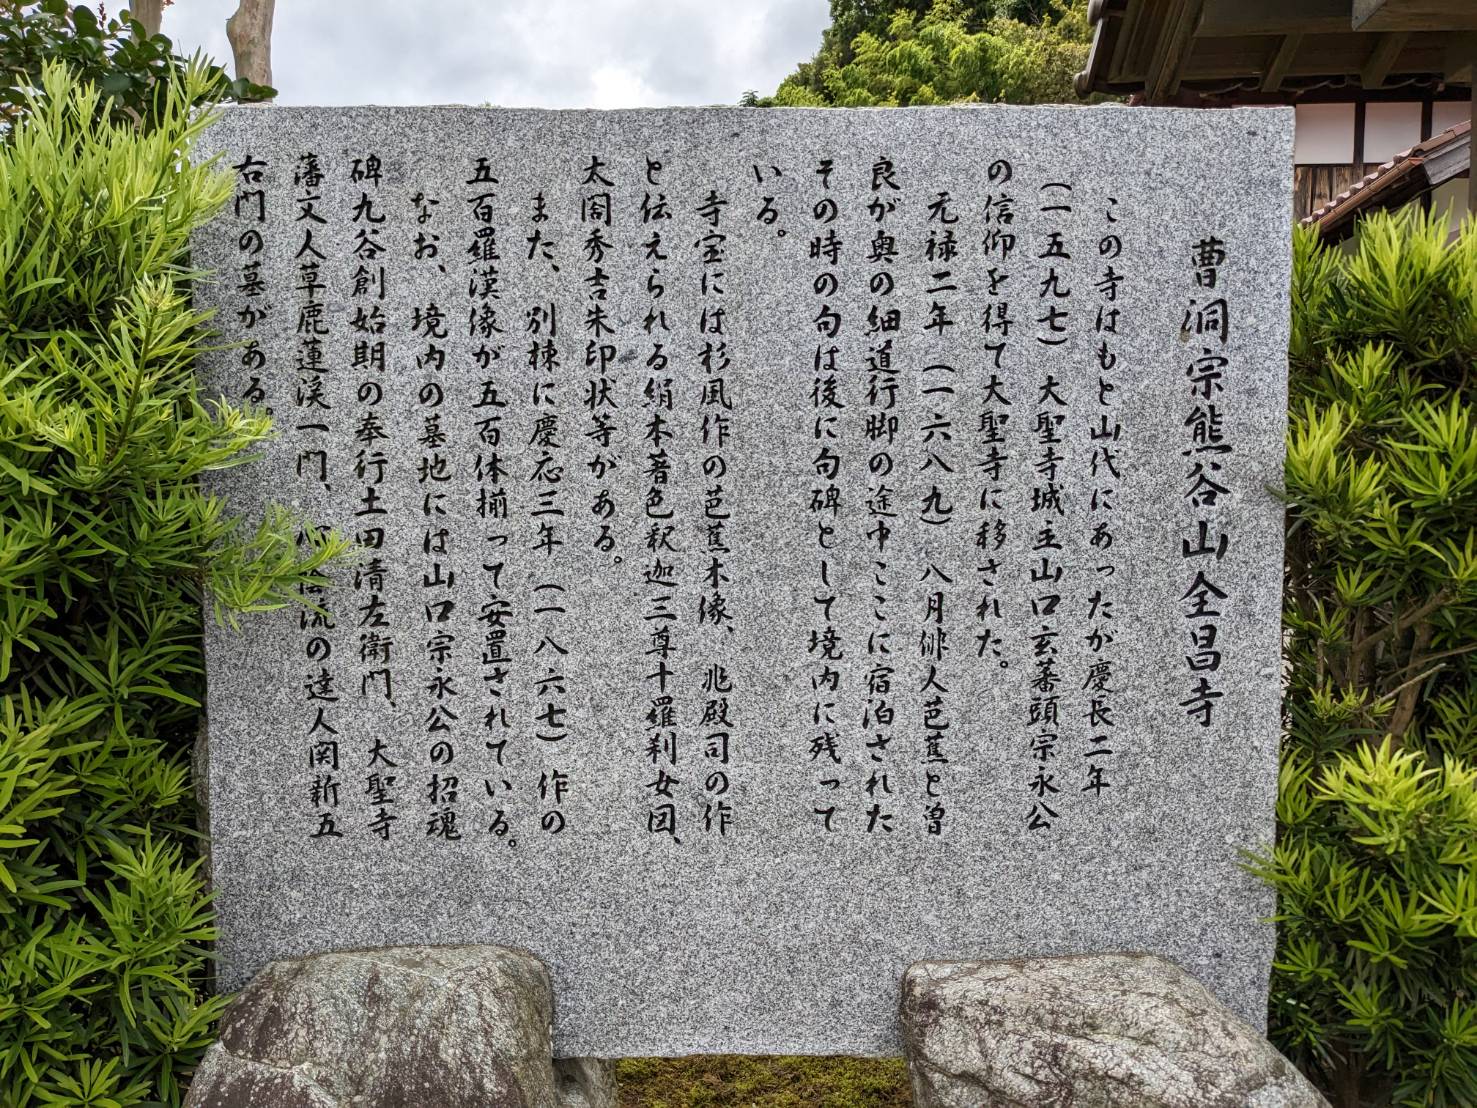 曹洞宗熊谷山全昌寺
この寺はもと山代にあったが慶長二年
(一五九七)大聖寺城主山口玄蕃頭宗永公
の信仰を得て大聖寺に移された。
元禄二年(一六八九)八月俳人芭蕉と曽
良が奥の細道行脚の途中ここに宿泊された
その時の句は後に句碑として境内に残って
いる。
寺宝には杉風作の芭蕉木像、兆殿司の作
と伝えられる絹本著色釈迦三尊十羅刹女図、
太閤秀吉朱印状等がある。
また、別棟に慶応三年(一八六七)作の
五百羅漢像が五百体揃って安置されている。
なお、境内の墓地には山口宗永公の招魂
碑九谷創始期の奉行土田清左衛門、大聖寺
藩文人草鹿蓮渓一門、心流の達人関新五
右門の墓がある。